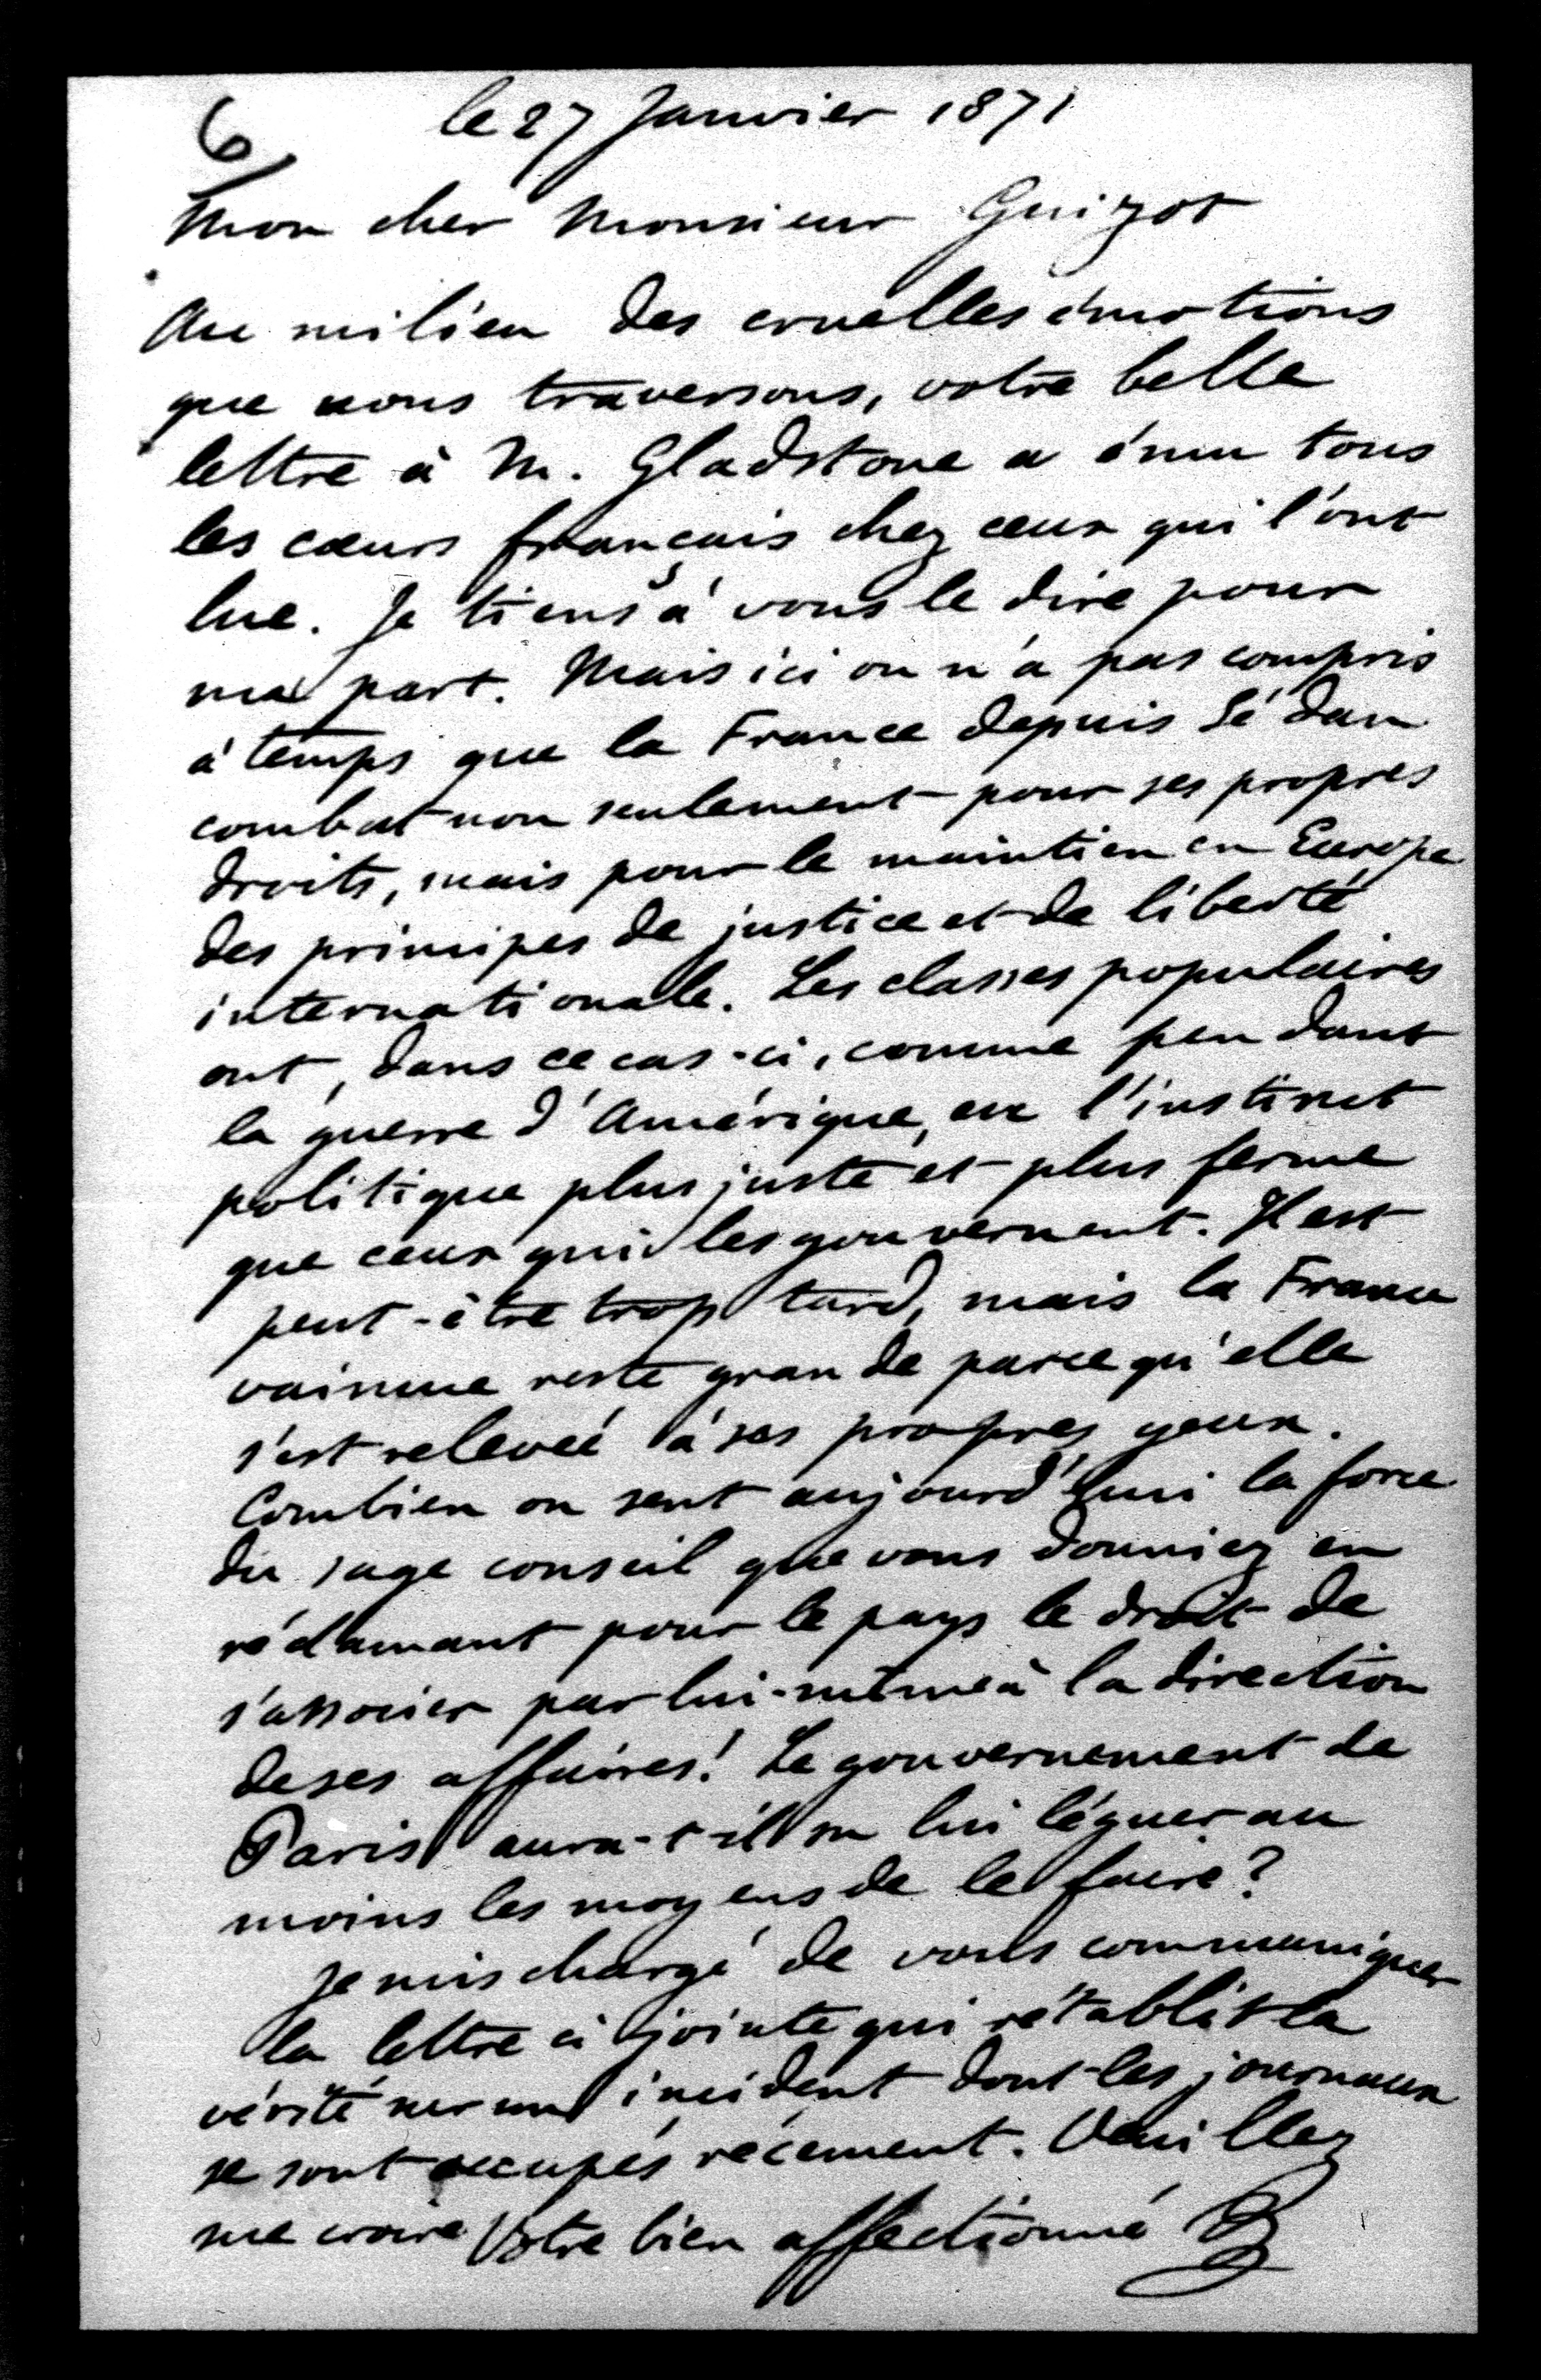 6/
le 27 Janvier 1871
Mon cher Monsieur Guizot
Au milieu des cruelles émotions
que nous traversons, votre belle
lettre à M. Gladstone a ému tous
les cœurs français chez ceux qui l'ont
lue. Je tiens à vous le dire pour
ma part. Mais ici on n'a pas compris
à temps que la France depuis Sédan
combat non seulement pour ses propres
droits, mais pour le maintien en Europe
des principes de justice et de liberté
internationale. Les classes populaires
ont, dans ce cas-ci, comme pendant
la guerre d'Amérique, eu l'instinct
politique plus juste et plus ferme
que ceux qui les gouvernent. Il est
peut-être trop tard, mais la France
vaincue reste grande parce qu'elle
s'est relevée à ses propres yeux.
Combien on sent aujourd'hui la force
du sage conseil que vous donniez en
réclamant pour le pays le droit de
s'associer par lui-même à la direction
de ses affaires! Le gouvernement de
Paris aura-t-il su lui léguer au
moins les moyens de le faire?
Je suis chargé de vous communiquer
la lettre ci jointe qui rétablit la
vérité sur un incident dont les journaux
se sont occupés récement. Veuillez
me croire Votre bien affectionné